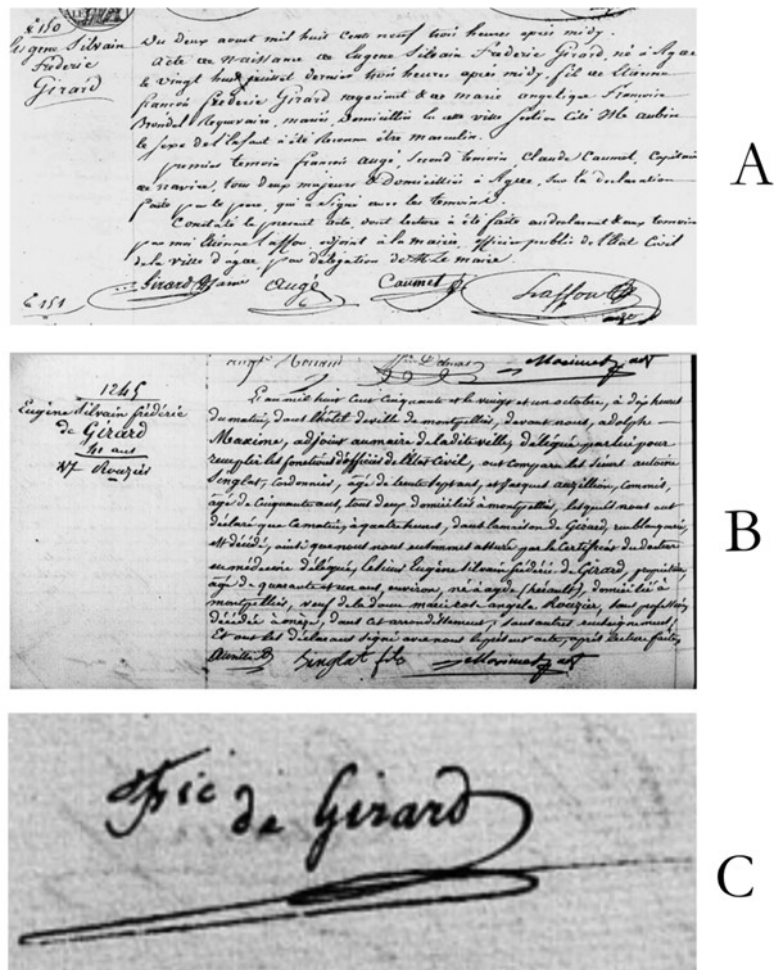 № 150
Eugene Silvain
Frederic
Girard
Du deux aout mil huit cent neuf trois heures après midy.
acte de Naissance de Eugene Silvain Frederic Girard, né à Agde
le vingt huit juillet dernier trois heures après midy. fils de Etienne
françois frederic Girard negociant & de marie angelique Françoise
mariés, Domiciliés en cette ville Section Cité
le sexe de l'enfant à été Reconnu être masculin.
premier temoin françois augé, Second temoin, Claude Caumet, Capitaine
de navire, tous deux majeurs & Domiciliés à Agde, Sur la declaration
faite par le pere, qui a Signé avec les temoins.
Constaté le present acte, dont lecture à été faite au declarant & aux temoins
par moi Etienne Laffon, adjoint à la mairie, officier public de l'Etat Civil
de la ville d'agde, par délégation de Mr Le maire.
Girard augé Caumet Laffon
№ 151
A
1245
Eugène Silvain frédéric
de Girard
41 ans
Vf Rouzier
L'an mil huit cent cinquante et le vingt et un octobre, à dix heures
du matin, dans l'hôtel de ville de montpellier, devant nous, adolphe
Maxime, adjoint au maire de la dite ville, délégué par lui pour
remplir les fonctions d'officier de l'état Civil, ont comparu les sieurs antoine
Singlat, Cordonnier, âgé de trente sept ans, et Jacques auzillion, Commis,
âgé de Cinquante ans, tous deux domiciliés à montpellier, lesquels nous ont
déclaré que ce matin, à quatre heures, dans la maison de Girard, rue blanquerie,
est décédé, ainsi que nous nous en sommes assuré par le Certificat du docteur
en médecine délégué, le Sieur Eugène Silvain frédéric de Girard, propriétaire,
âgé de quarante et un ans, environ, né à agde (hérault), domicilié à
montpellier, veuf de la dame marie rose angela Rouzier, sans profession,
décédée à mèze, dans cet arrondissement, sans autres renseignements,
Et ont les déclarans signé avec nous le présent acte, après lecture faite,
Singlat fils
B
Fric de Girard
C